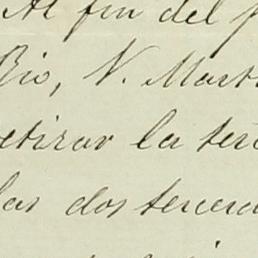 Al fin del
Rio, N. Mart
retirar la terc
las dos tercera